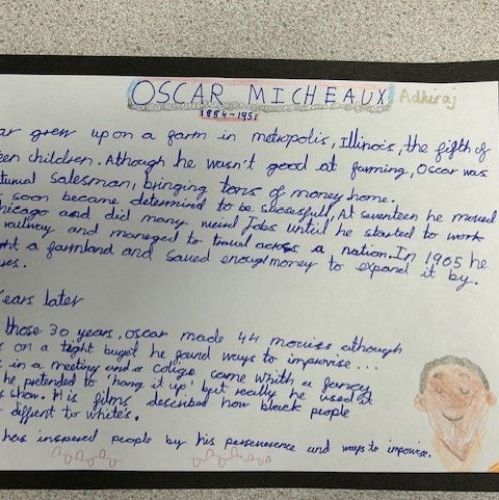 OSCAR MICHEAUX Adhiraj
1884-1951
ar grew up on a farm in metropolis, Illinois, the fifth of
een children. Although he wasn't good at farming, Oscar was
tural salesman, bringing tons of money home.
soon became determind to be sucessfull, At seventeen he moved
hicago and did many weird Jobs until he started to work
railway and managed to travel across a nation. In 1905 he
ht a farmland and saved enough money to expand it by.
res.
ears later
those 30 years, oscar made 44 movies although
s on a tight buget he found ways to improvise...
in a meeting and a colige came whith a fancy
he pretended to 'hang it up' but really he used it
show. His films described how black people
diffent to white's.
has inspired people by his perseverence and ways to improvise.